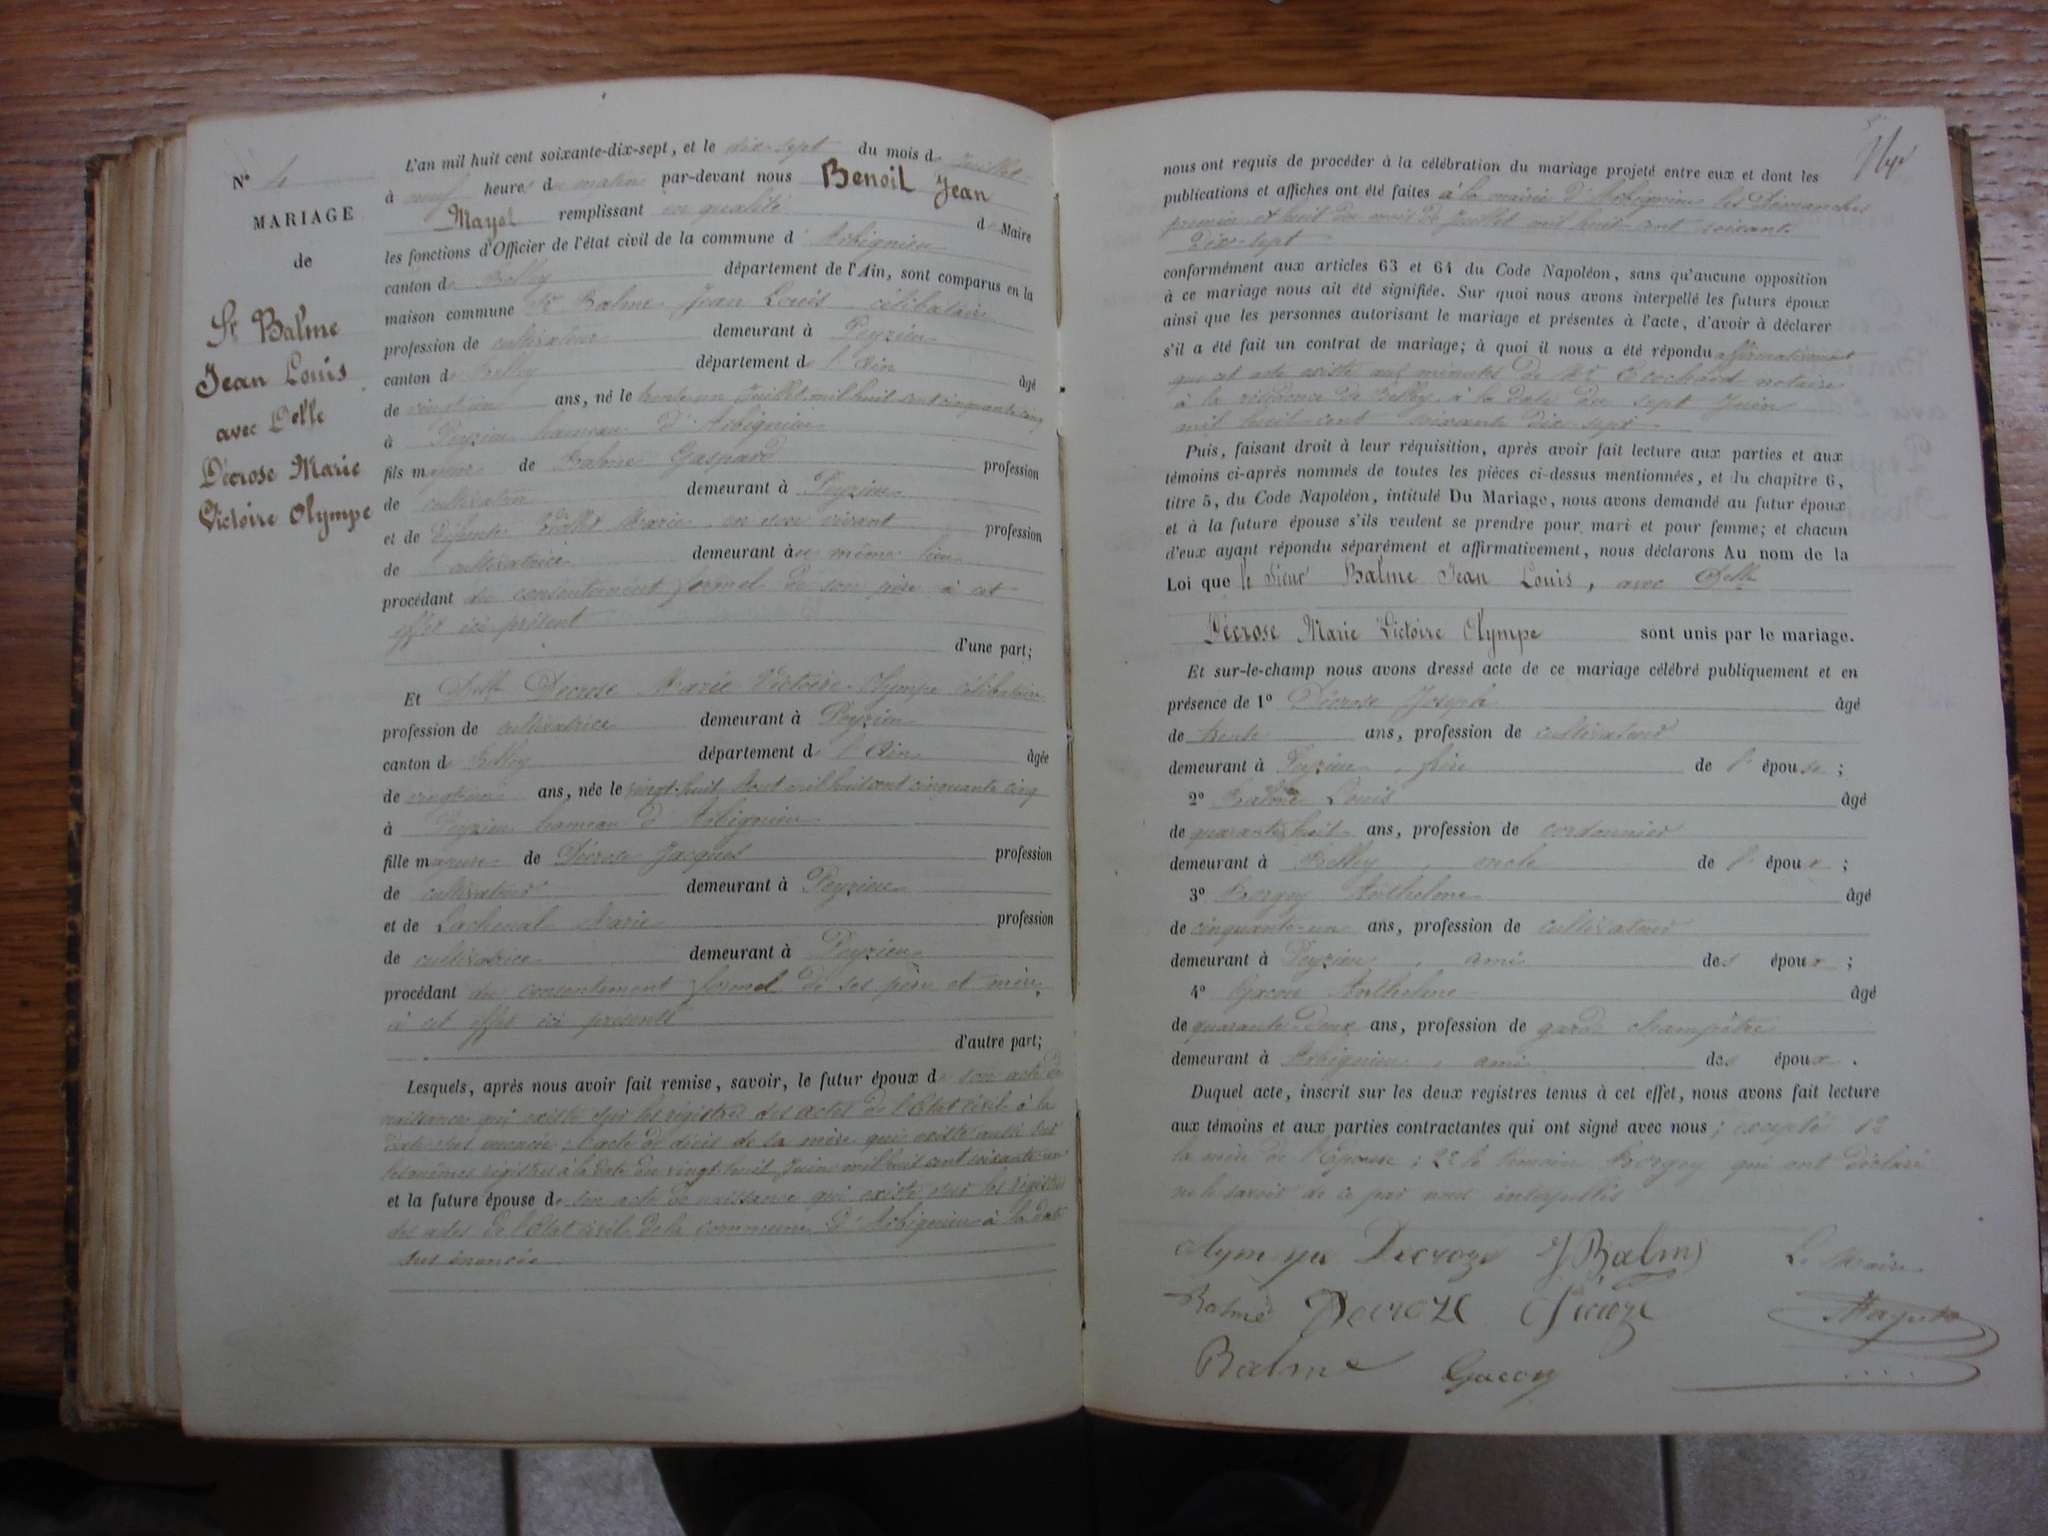 N° 4
MARIAGE
de
Sr Balme
Jean Louis
avec Delle
Décrose Marie
Victoire Olympe
L'an mil huit cent soixante-dix-sept, et le dix-sept du mois de Juillet
à neuf heures du matin par-devant nous Benoit Jean
Mayet remplissant en qualité de Maire
les fonctions d'Officier de l'état civil de la commune d'Arbignieu
canton de Belley département de l'Ain, sont comparus en la
maison commune Sr Balme Jean Louis célibataire
profession de cultivateur demeurant à Peyzieu
canton de Belley département de l'Ain âgé
de vingt un ans, né le trente un Juillet mil huit cent cinquante cinq
à Peyzieu hameau d'Arbignieu
fils majeur de Balme Gaspard profession
de cultivateur demeurant à Peyzieu
et de Défunte Marie en son vivant profession
de cultivatrice demeurant au même lieu
procédant du consentement formel de son père à cet
effet ici présent
d'une part;
Et Delle Décrose Marie Victoire Olympe célibataire
profession de cultivatrice demeurant à Peyzieu
canton de Belley département de l'Ain âgée
de vingt un ans, née le vingt-huit Aout mil huit cent cinquante cinq
à Peyzieu hameau d'Arbignieu
fille majeure de Décrose Jacques profession
de cultivateur demeurant à Peyzieu
et de Lacheval Marie profession
de cultivatrice demeurant à Peyzieu
procédant du consentement formel de ses père et mère,
à cet effet ici présents
d'autre part;
Lesquels, après nous avoir fait remise, savoir, le futur époux de son acte de
naissance qui existe sur les régistres des actes de l'Etat civil à la
date sus énoncée; l'acte de décès de sa mère qui existe aussi sur
les mêmes registres à la date du vingt huit Juin mil huit cent soixante un
et la future épouse de son acte de naissance qui existe sur les régistres
des actes de l'Etat civil de la commune d'Arbignieu à la date
sus énoncée
nous ont requis de procéder à la célébration du mariage projeté entre eux et dont les
publications et affiches ont été faites à la mairie d'Arbignieu les Dimanches
premier et huit du mois de Juillet mil huit cent soixante
dix-sept
conformément aux articles 63 et 64 du Code Napoléon, sans qu'aucune opposition
à ce mariage nous ait été signifiée. Sur quoi nous avons interpellé les futurs époux
ainsi que les personnes autorisant le mariage et présentes à l'acte, d'avoir à déclarer
s'il a été fait un contrat de mariage; à quoi il nous a été répondu affirmativement
que cet acte existe aux minutes de Me Ecochard notaire
à la résidence de Belley à la date du sept Juin
mil huit cent soixante dix sept
Puis, faisant droit à leur réquisition, après avoir fait lecture aux parties et aux
témoins ci-après nommés de toutes les pièces ci-dessus mentionnées, et du chapitre 6,
titre 5, du Code Napoléon, intitulé Du Mariage, nous avons demandé au futur époux
et à la future épouse s'ils veulent se prendre pour mari et pour femme; et chacun
d'eux ayant répondu séparément et affirmativement, nous déclarons Au nom de la
Loi que le Sieur Balme Jean Louis, avec Delle
Décrose Marie Victoire Olympe sont unis par le mariage.
Et sur-le-champ nous avons dressé acte de ce mariage célébré publiquement et en
présence de 1° Décrose Joseph âgé
de trente ans, profession de cultivateur
demeurant à Peyzieu, frère de l'épouse;
2° Balme Louis âgé
de quarante huit ans, profession de cordonnier
demeurant à Belley, oncle de l'époux;
3° Borgey Anthelme âgé
de cinquante-un ans, profession de cultivateur
demeurant à Peyzieu, ami des époux;
4° Gacon Anthelme âgé
de quarante deux ans, profession de garde champêtre
demeurant à Arbignieu, ami des époux.
Duquel acte, inscrit sur les deux registres tenus à cet effet, nous avons fait lecture
aux témoins et aux parties contractantes qui ont signé avec nous; exceptés 1°
la mère de l'Epouse; 2° le témoin Borgey qui ont déclaré
ne le savoir de ce par nous interpellés
Olympe Decroze J Balme Le Maire
Balme Decroze Decroze Mayet
Balme Gacon